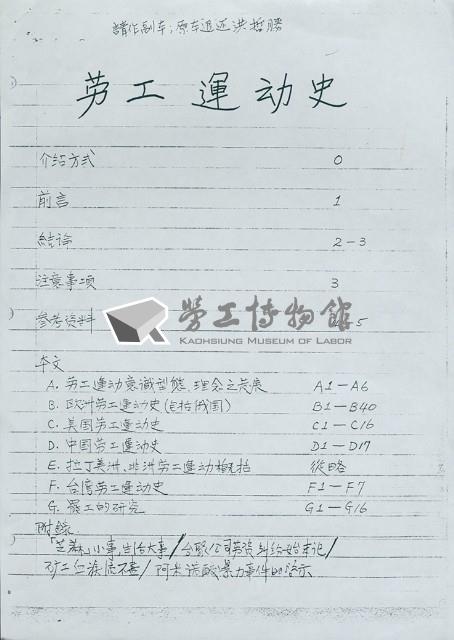 請作副本；原本退还洪哲勝
劳工運动史
介绍方式 0
前言 1
結論 2-3
注意事项 3
参考资料 5
勞工博物館
KAOHSIUNG MUSEUM OF LABOR
本文
A. 劳工運动意識型態、理念之发展 A1-A6
B. 欧洲劳工運动史(包括俄国) B1-B40
C. 美国劳工運动史 C1-C16
D. 中国劳工運动史 D1-D17
E. 拉丁美洲、非洲劳工運动概括 從略
F. 台湾劳工運动史 F1-F7
G. 罢工的研究 G1-G16
附錄
「芝蔴」小事，生活大事/台聚公司劳资纠纷始末记/
矿工/阿米诺酸暴力事件的啓示